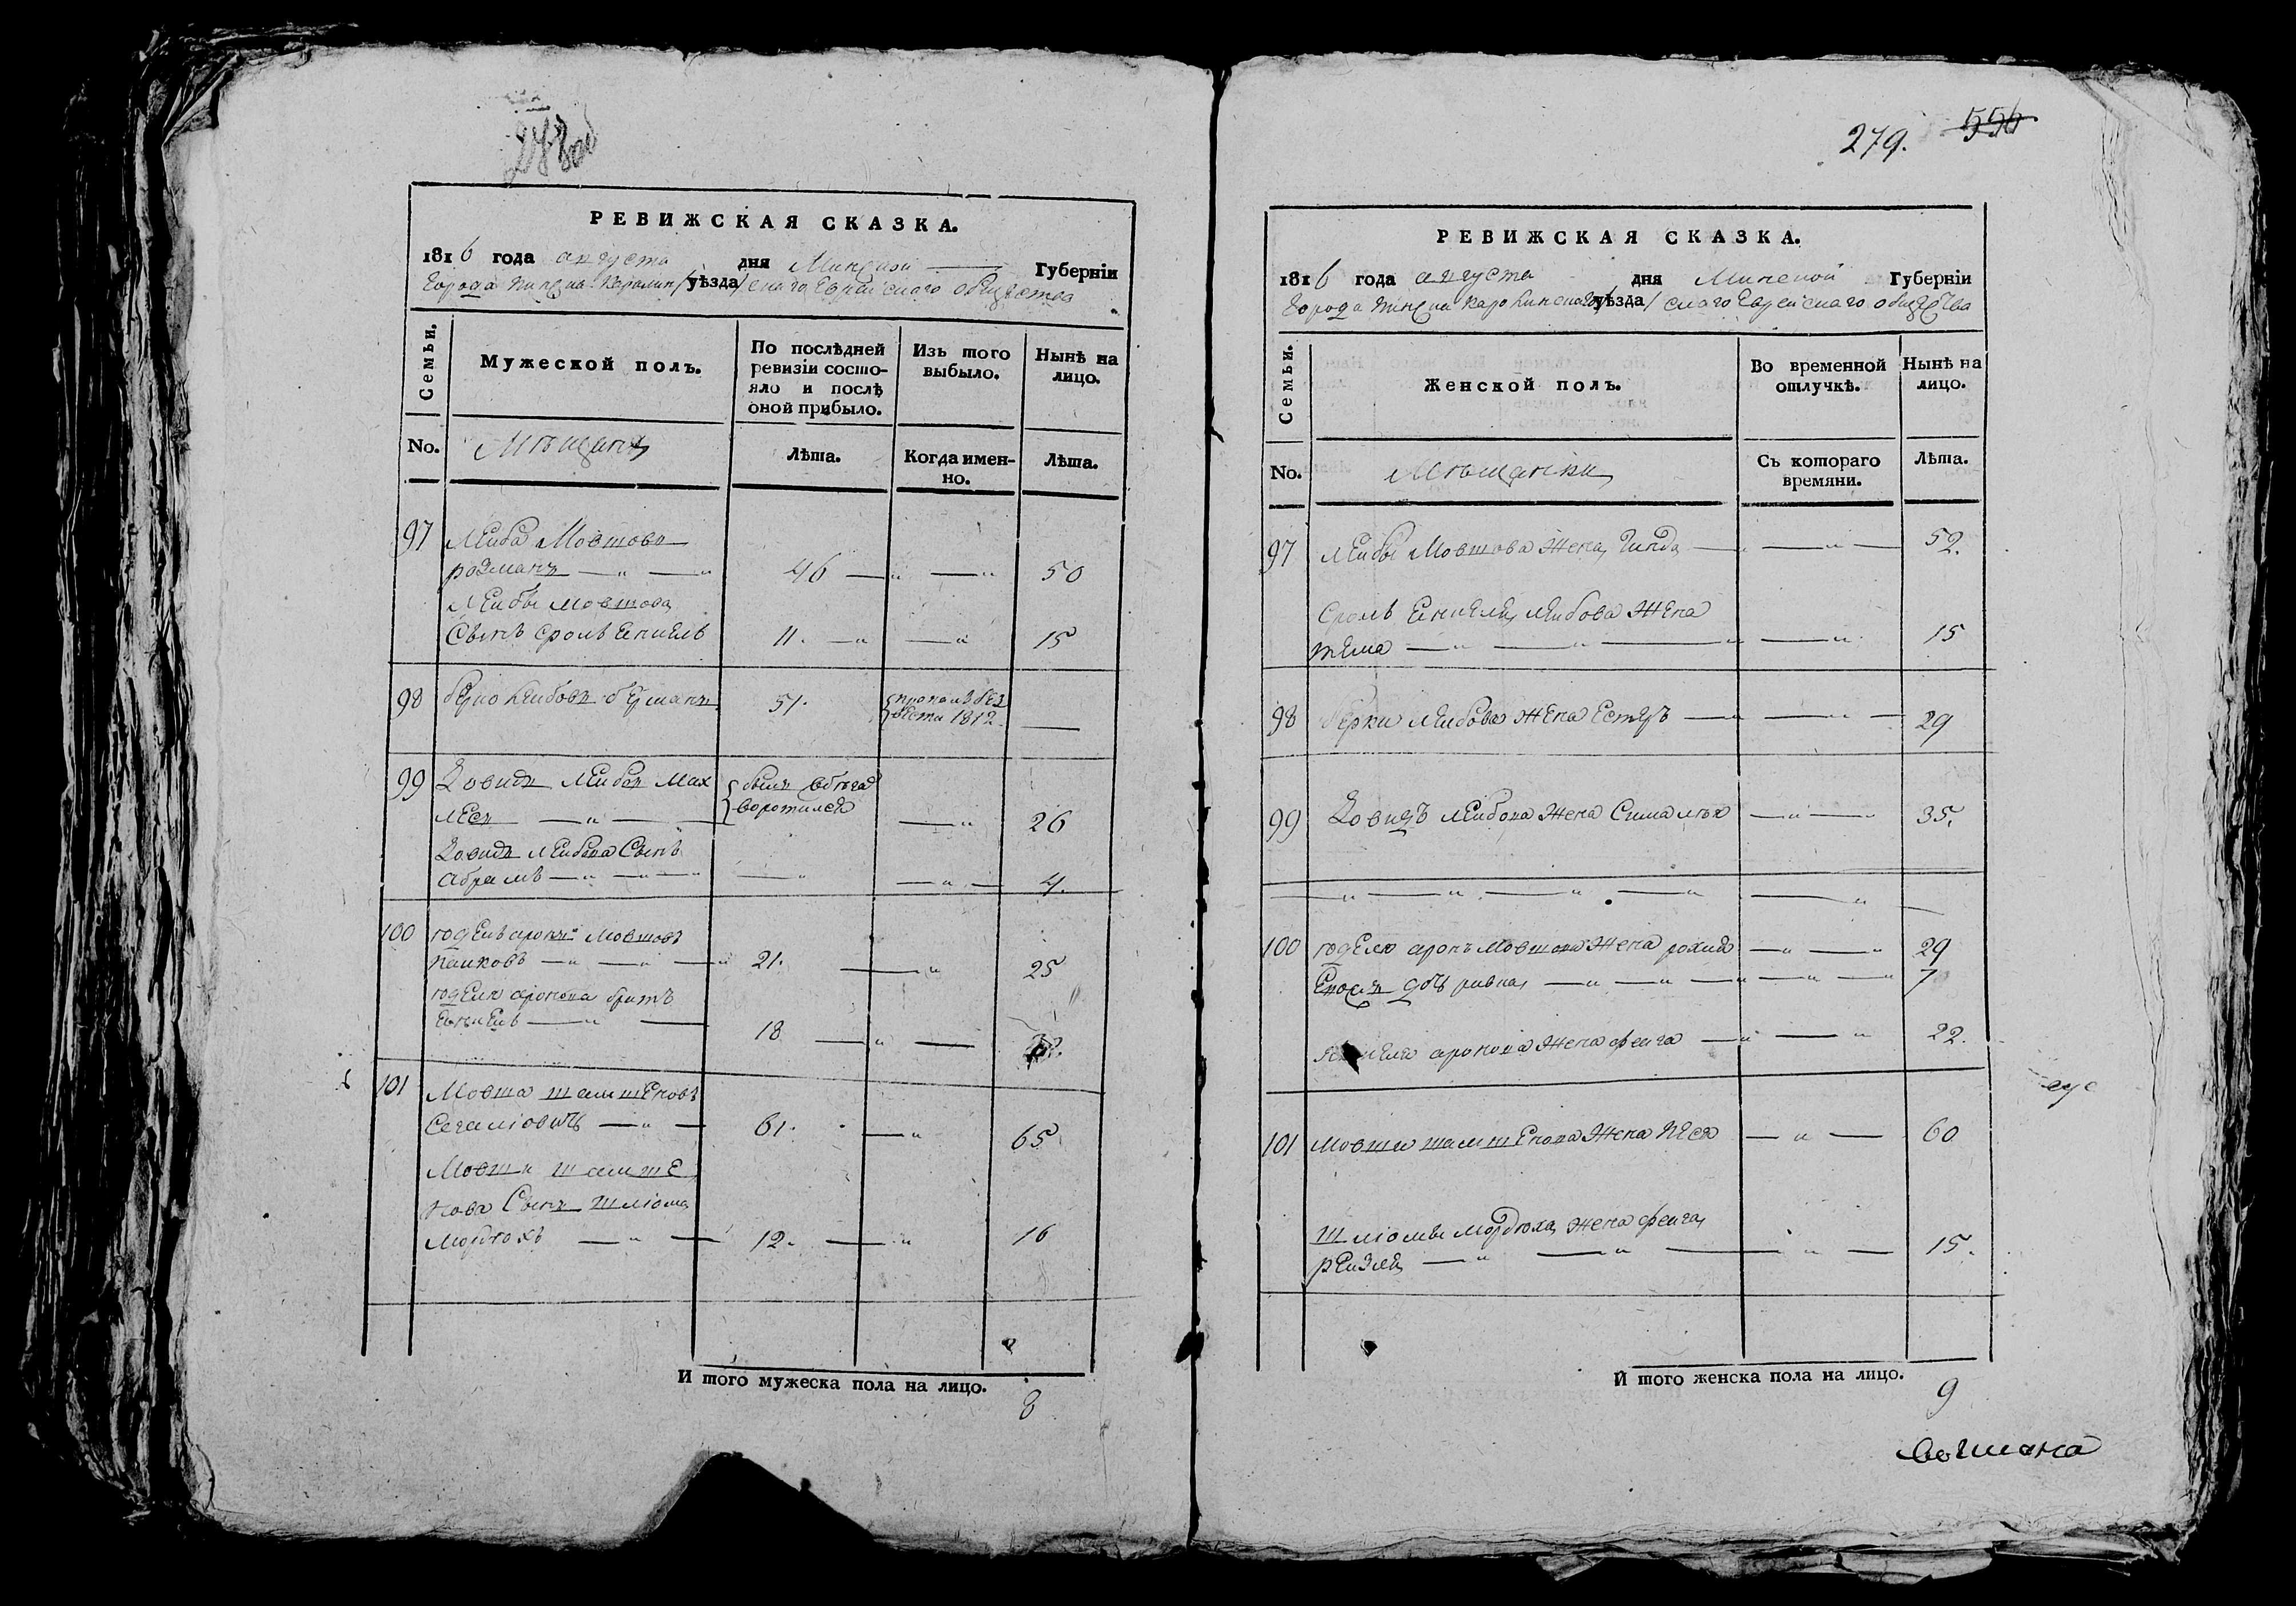 278 об
РЕВИЖСКАЯ СКАЗКА.
1816 года августа дня Минской Губерніи
Города Пинска Каролин/уѣзда/скаго Еврейскаго общества
Семьи.
Мужеской полъ.
По послѣдней ревизіи состояло и послѣ оной прибыло.
Изъ того выбыло.
Нынѣ на лицо.
No.
Мѣщанъ
Лѣта.
Когда именно.
Лѣта.
97 Лейба Мовшовъ
розманъ 46 50
Лейбы мовшова
Сынъ сроль 11. 15
98 берко Лейбовъ берманъ 51. пропалъ без вести 1812.
99 Довидъ Лейбов Мах
лесъ былъ в бѣгах воротился 26
Довидъ Лейбова Сынъ
абрамъ 4.
100 годель аронъ Мовшовъ
21. 25
годеля аронова братъ
18
101 Мовша шамшеновъ
Сегаловичъ 61. 65
Мовши шамше
нова Сынъ шліома
мордюхъ 12. 16
И того мужеска пола на лицо.
8
279. 556
РЕВИЖСКАЯ СКАЗКА.
1816 года августа дня Минской Губерніи
Города Пинска Каролинскаго/уѣзда/скаго Еврейскаго общества
Семьи.
Женской полъ.
Во временной отлучкѣ.
Нынѣ на лицо.
No.
Мѣщанки
Съ котораго времяни.
Лѣта.
97 Лейбы Мовшова жена Гинда 52.
Сроль Лейбова жена
тема 15
98 берки Лейбова жена Естеръ 29
99 Довидъ Лейбова жена Сима 35.
100 годеля аронъ мовшова жена рохля 29
дочь ривка 7
аронова жена фейга 22.
101 Мовши шамшенова жена песя 60
шліомы мордюха жена фейга
рейзля 15.
И того женска пола на лицо.
9